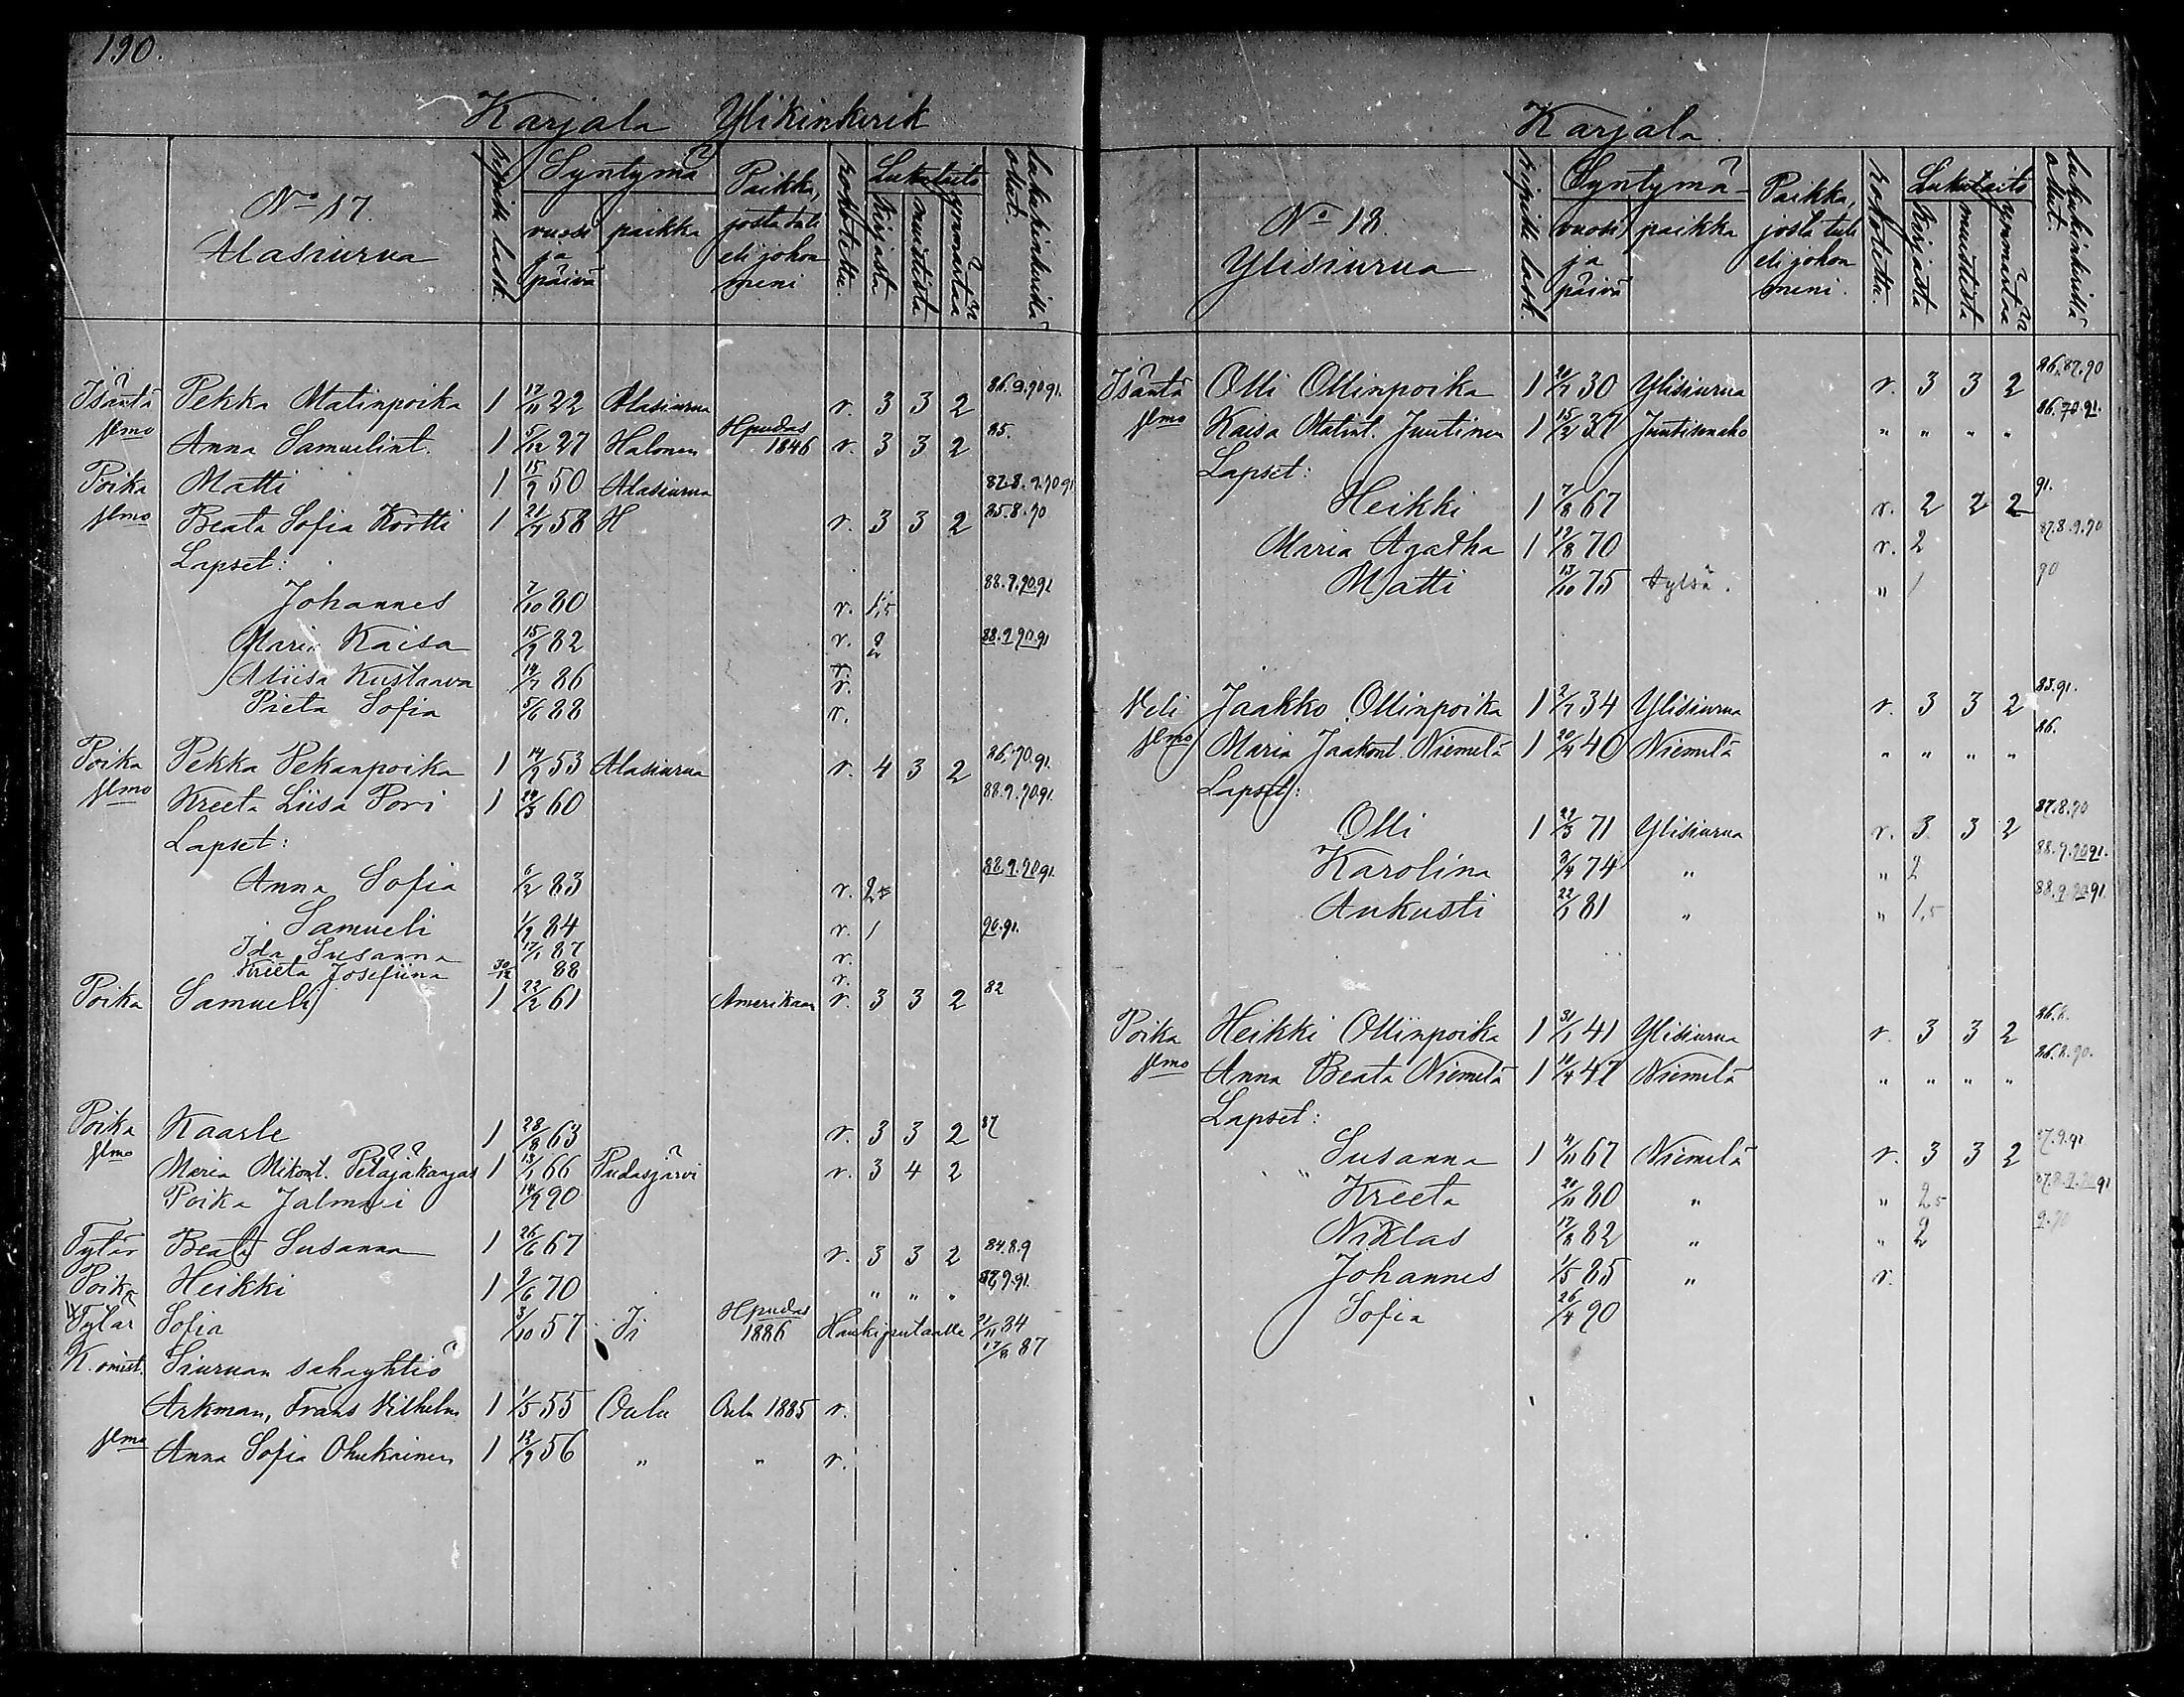 190.
Karjala Ylikinkerik
No 17.
Alasiurua
Syntymä
vuosi ja päivä
paikka
Paikka, josta tuli eli johon meni
rokotettu.
Lukutaito
kirjasta
muistista
ymmärtää
lukukinkerillä ollut.
Isäntä Pekka Matinpoika 1 17/11 22 Alasiurua r. 3 3 2 86.9.90.91.
Anna Samuelint. 1 5/12 27 Halonen Hpudas 1846 r. 3 3 2 85.
Poika Matti 1 15/9 50 Alasiurua 87.8.9.90.91
Beata Sofia Kortti 1 21/7 58 H r. 3 3 2 85.8.90
Lapset:
Johannes 7/10 80 r. 1,5 88.9.90.91
Maria Kaisa 15/9 82 r. 88.9.90.91
Aliisa Kustaava 14/7 86 r.
Prieta Sofia 5/6 88 r.
Poika Pekka Pekanpoika 1 14/9 53 Alasiurua r. 4 3 2 86.90.91.
Kreeta Liisa Pori 1 60 88.9.90.91.
Lapset:
Anna Sofia 6/2 83 r. 88.9.90.91.
Samueli 1/9 84 r. 1 90.91.
Ida Susanna 17/1 87 r.
Kreeta Josefiina 30/12 88 r.
Poika Samueli 1 22/2 61 Amerikaan r. 3 3 2 82
Poika Kaarle 1 28/8 63 r. 3 3 2 87
Maria Mikont. Petäjäkangas 1 13/1 66 Pudasjärvi r. 3 4 2
Poika Jalmari 14/9 90
Tytär Beata Susanna 1 26/6 67 r. 3 3 2 84.8.9
Poika Heikki 1 9/6 70 " " "
Tytär Sofia 3/10 57 Ii Hpudas 1886 Haukiputaalle 21/11 84
K. omist. Siuruan sahayhtiö 17/8 87
Arkman, Frans Vilhelm 1 1/5 55 Oulu Oulu 1885 r.
Anna Sofia Ohukainen 1 13/9 56 " " r.
Karjala.
No 18.
Ylisiurua
Syntymä-
vuosi ja päivä
paikka
Paikka, josta tuli eli johon meni.
rokotettu.
Lukutaito
kirjasta
muistista
ymmärtää
lukukinkerillä ollut.
Isäntä Olli Ollinpoika 1 30 Ylisiurua r. 3 3 2 86.87.90
Kaisa Matint. Juutinen 1 15/2 37 " " " " 86.90.91.
Lapset:
Heikki 1 7/8 67 r. 2 2 2 91.
Maria Agatha 1 17/8 70 r. 2 87.8.9.90
Matti 13/10 75 tylsä. " 1 90
Veli Jaakko Ollinpoika 1 2/7 34 Ylisiurua r. 3 3 2 85.91.
Maria Jaakont. Niemelä 1 20/4 40 Niemelä " " " " 86.
Lapset:
Olli 1 29/3 71 Ylisiurua r. 3 3 2 87.8.90
Karolina 3/4 74 " " 2 88.9.90.91.
Aukusti 22/1 81 " " 1,5 88.9.90.91.
Poika Heikki Ollinpoika 1 31/1 41 Ylisiurua r. 3 3 2 86.8.
Anna Beata Niemelä 1 47 Niemelä " " " " 86.8.90.
Lapset:
Susanna 1 4/11 67 Niemelä r. 3 3 2 87.9.91
Kreeta 20/11 80 " " 2,5
Niklas 17/8 82 " " 2 9.90
Johannes 1/5 85 " r.
Sofia 26/4 90